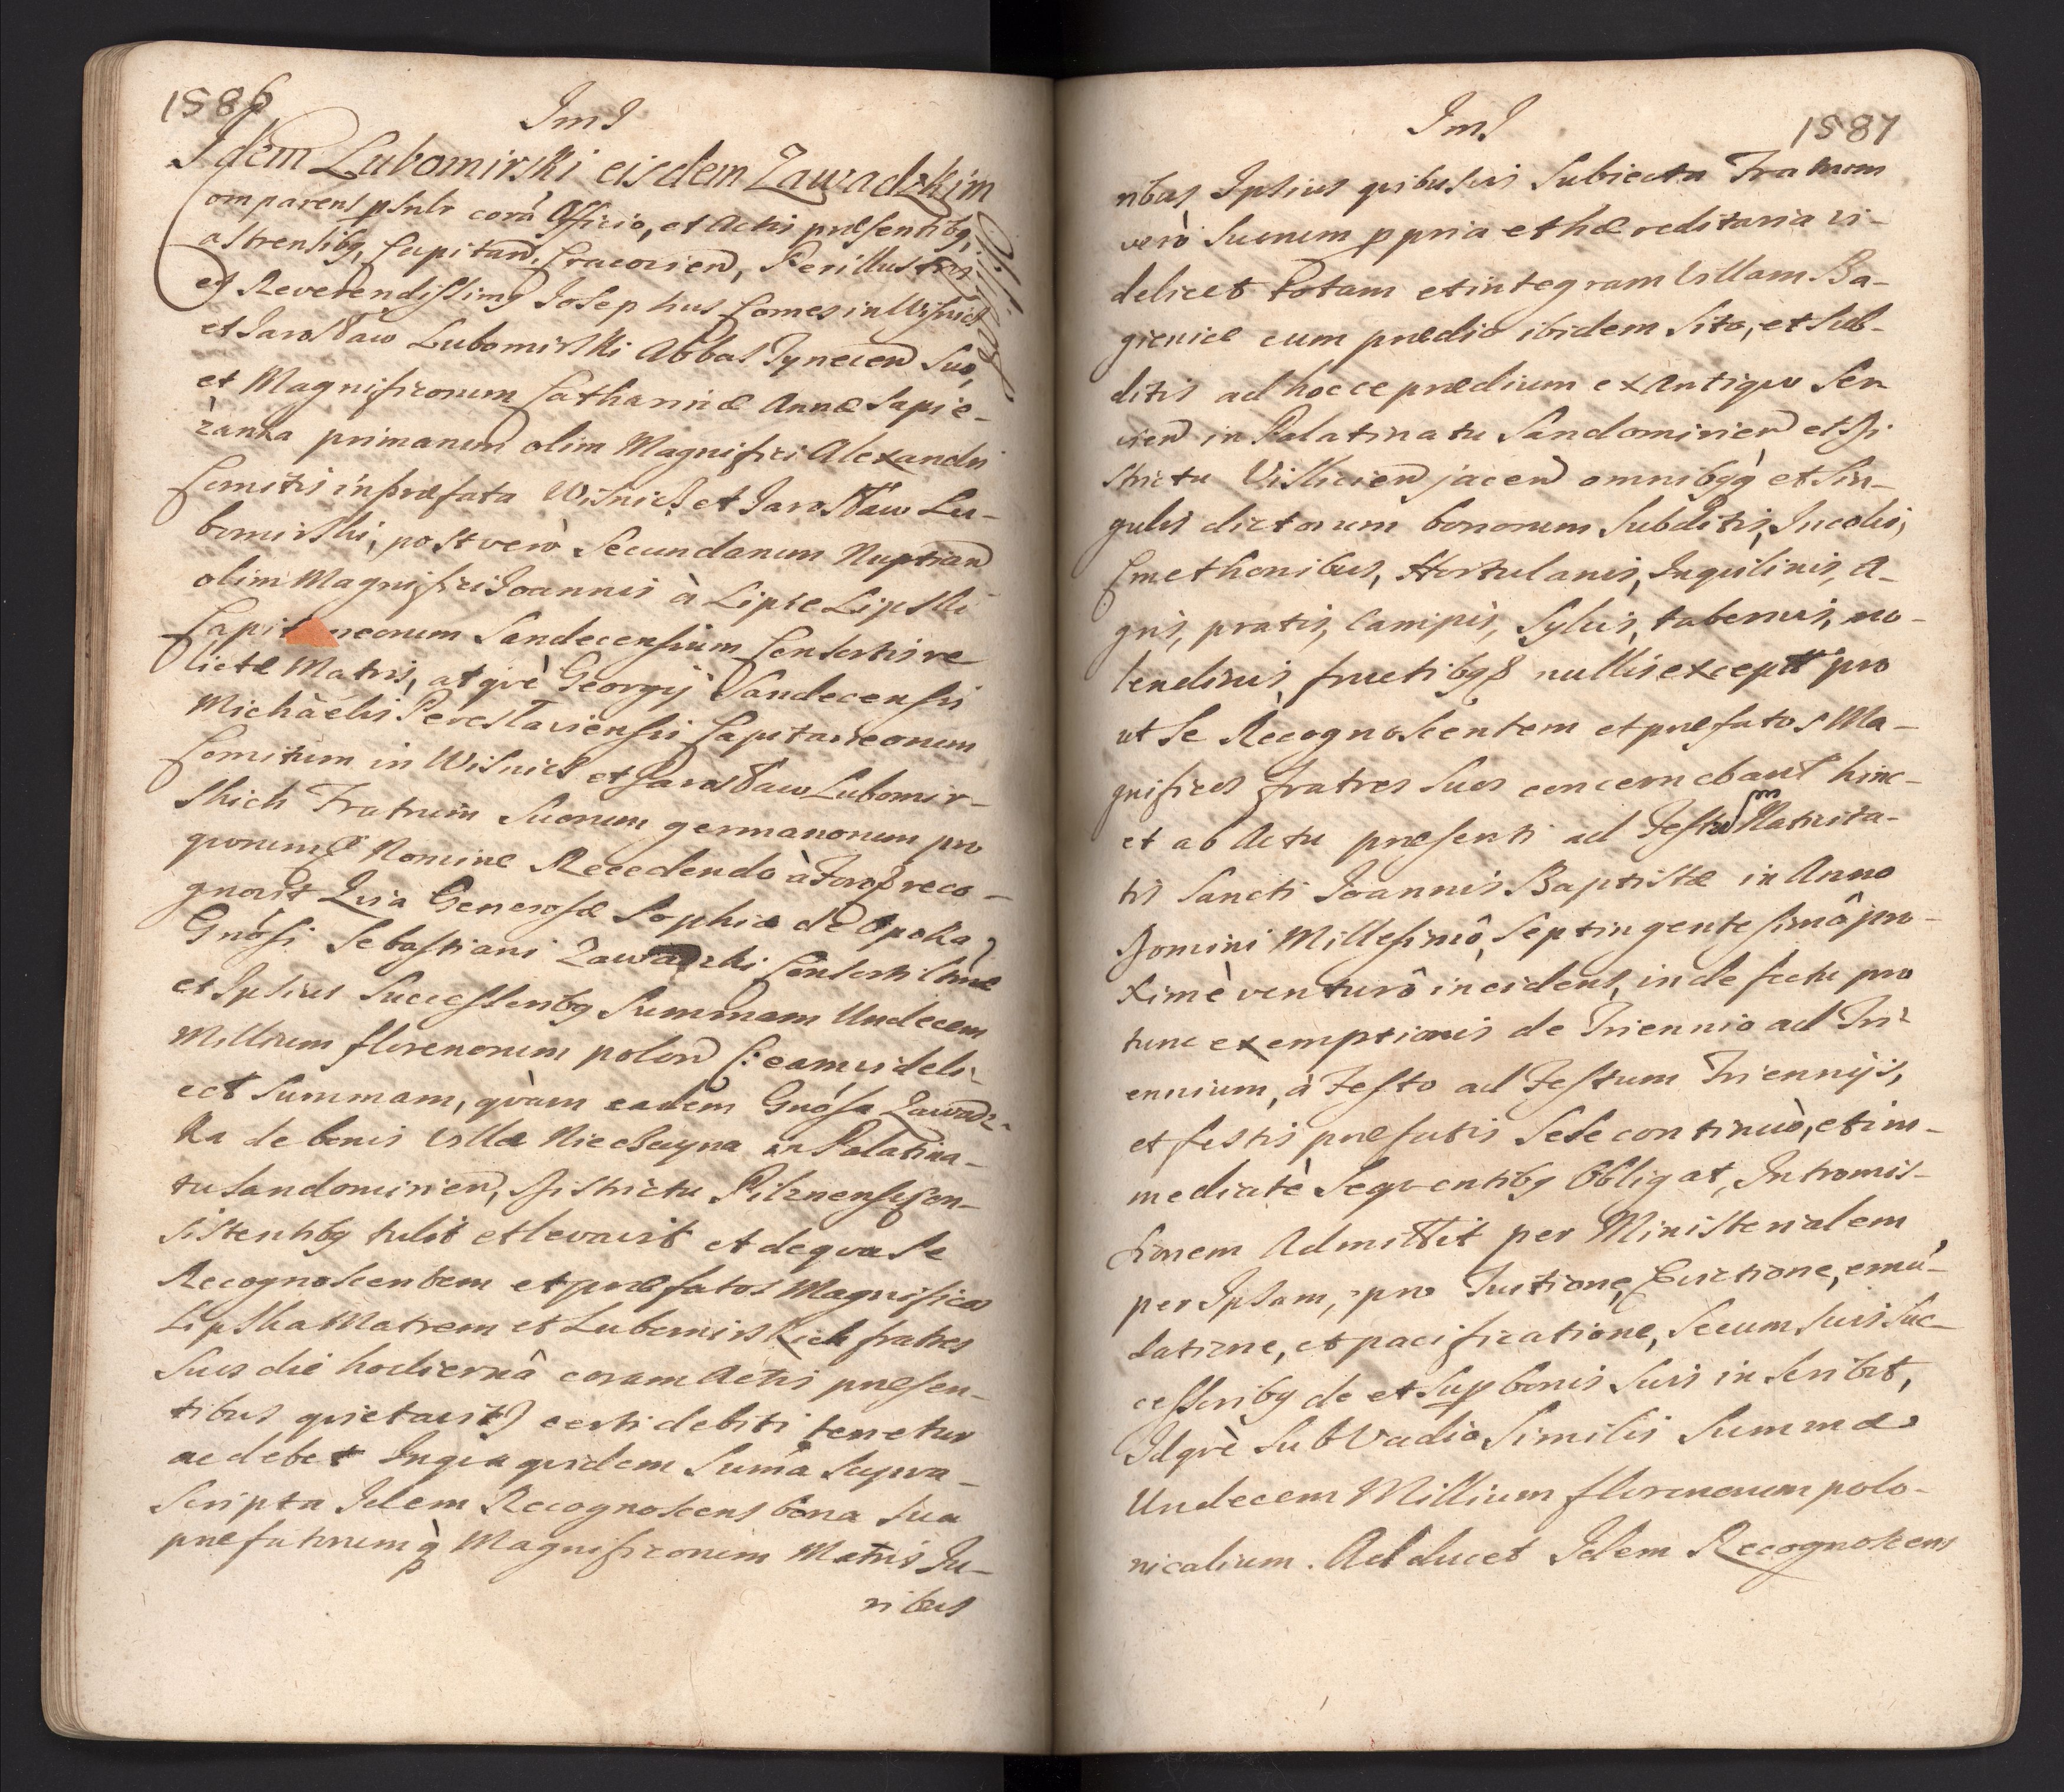 1586
Idem Lubomirski eisdem Zawadzkim
Comparens psnlr corā Officio, et Actis præsentibg,
Castrensibg, Capitan̄. Cracovien̄, Perillustris
et Reverendissimg Josephus Comes in Wisnicz
et Jarosław Lubomirski Abbas Tynecen̄ Suo,
et Magnificorum Catharinæ Annæ Sapie-
żanka primarum olim Magnifici Alexandri
Comitis in præfata Wisnicz et Jarosław Lu-
bomirski, post verò Secundarum Nuptiar̄
olim Magnifici Joannis à Lipie Lipski
Capitaneorum Sandecensium Consortis re
lictæ Matris, atqvè Georgij Sandecensis
Michäelis Pereslaviensis Capitaneorum
Comitum in Wisnicz et Jarosław Lubomir-
skich Fratrum Suorum germanorum pro
quorumq Nomine Recedendo à Foroq reco-
gnovit Qvia Generosæ Sophiæ de Opoka
Gnósi Sebastiani Zawadzki Consorti
et Ipsius Successoribg Summam Undecem
Millium florenorum polon̄ (: eam videli-
cet Summam, qvàm eadem Gnósa Zawadz-
ka de bonis Villæ Niedswyna in Palatina-
tu Sandomirien̄, Districtu Pilznensi con-
sistentibg tulit et levavit et de qva Se
Recognoscentem et præfatos Magnificos
Lipska Matrem et Lubomirskich fratres
Suos die hodiernâ coram Actis præsen-
tibus qvietavit) certi debiti tenetur
ac debet In qva qvidem Sum̄a Supra-
scripta Idem Recognoscens bona Sua
præfatorumq̀ Magnificorum Matris Ju-
ribus
1587
ribus Ipsius qvibusvis Subiecta Fratrum
verò Suorum ppria et hæreditaria vi-
delicet totam et integram Villam Ba-
gienice cum prædio ibidem Sito, et Sub-
ditis ad hocce prædium ex Antiqvo Ser
vien̄ in Palatinatu Sandomirien̄ et Di
strictu Vislicien̄ jacen̄ omnibgq̀ et Sin-
gulis dictorum bonorum Subditis, Incolis,
Cmethonibus, Hortulanis, Inqvilinis, A-
gris, pratis, Campis, Sylvis, tabernis, mo-
lendinis, fructibgq nullis except̄ pro
ut Se Recognoscentem et præfatos Ma-
gnificos fratres Suos concernebant hinc-
et ab Actu præsenti ad Festum Nativita-
tis Sancti Joannis Baptistæ in Anno
Domini Millesimô, Septingentesimô pro-
ximè venturô incidens, in defectu pro
tunc exemptionis de Triennio ad Tri-
ennium, à Festo ad Festum Triennijs,
et festis præfatis Sese continuò, et im-
mediatè Seqventibg Obligat, Intromis-
sionem Admittit per Ministerialem
per Ipsam, pro Tuitione, Evictione, emu-
datione, et pacificatione, Secum Suis Suc-
cessoribg de et Sup bonis Suis inscribit,
Idqvè Sub Vadio Similis Summæ
Undecem Millium florenorum polo-
nicalium. Ad Lucet Idem Recognoscens